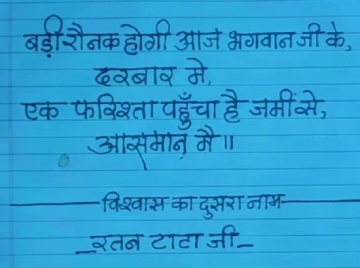 बड़ी रौनक होगी आज भगवान जी के,
दरबार मे,
एक फरिश्ता पहुँचा है जमीं से,
आसमान मै॥
विश्वास का दुसरा नाम
रतन टाटा जी